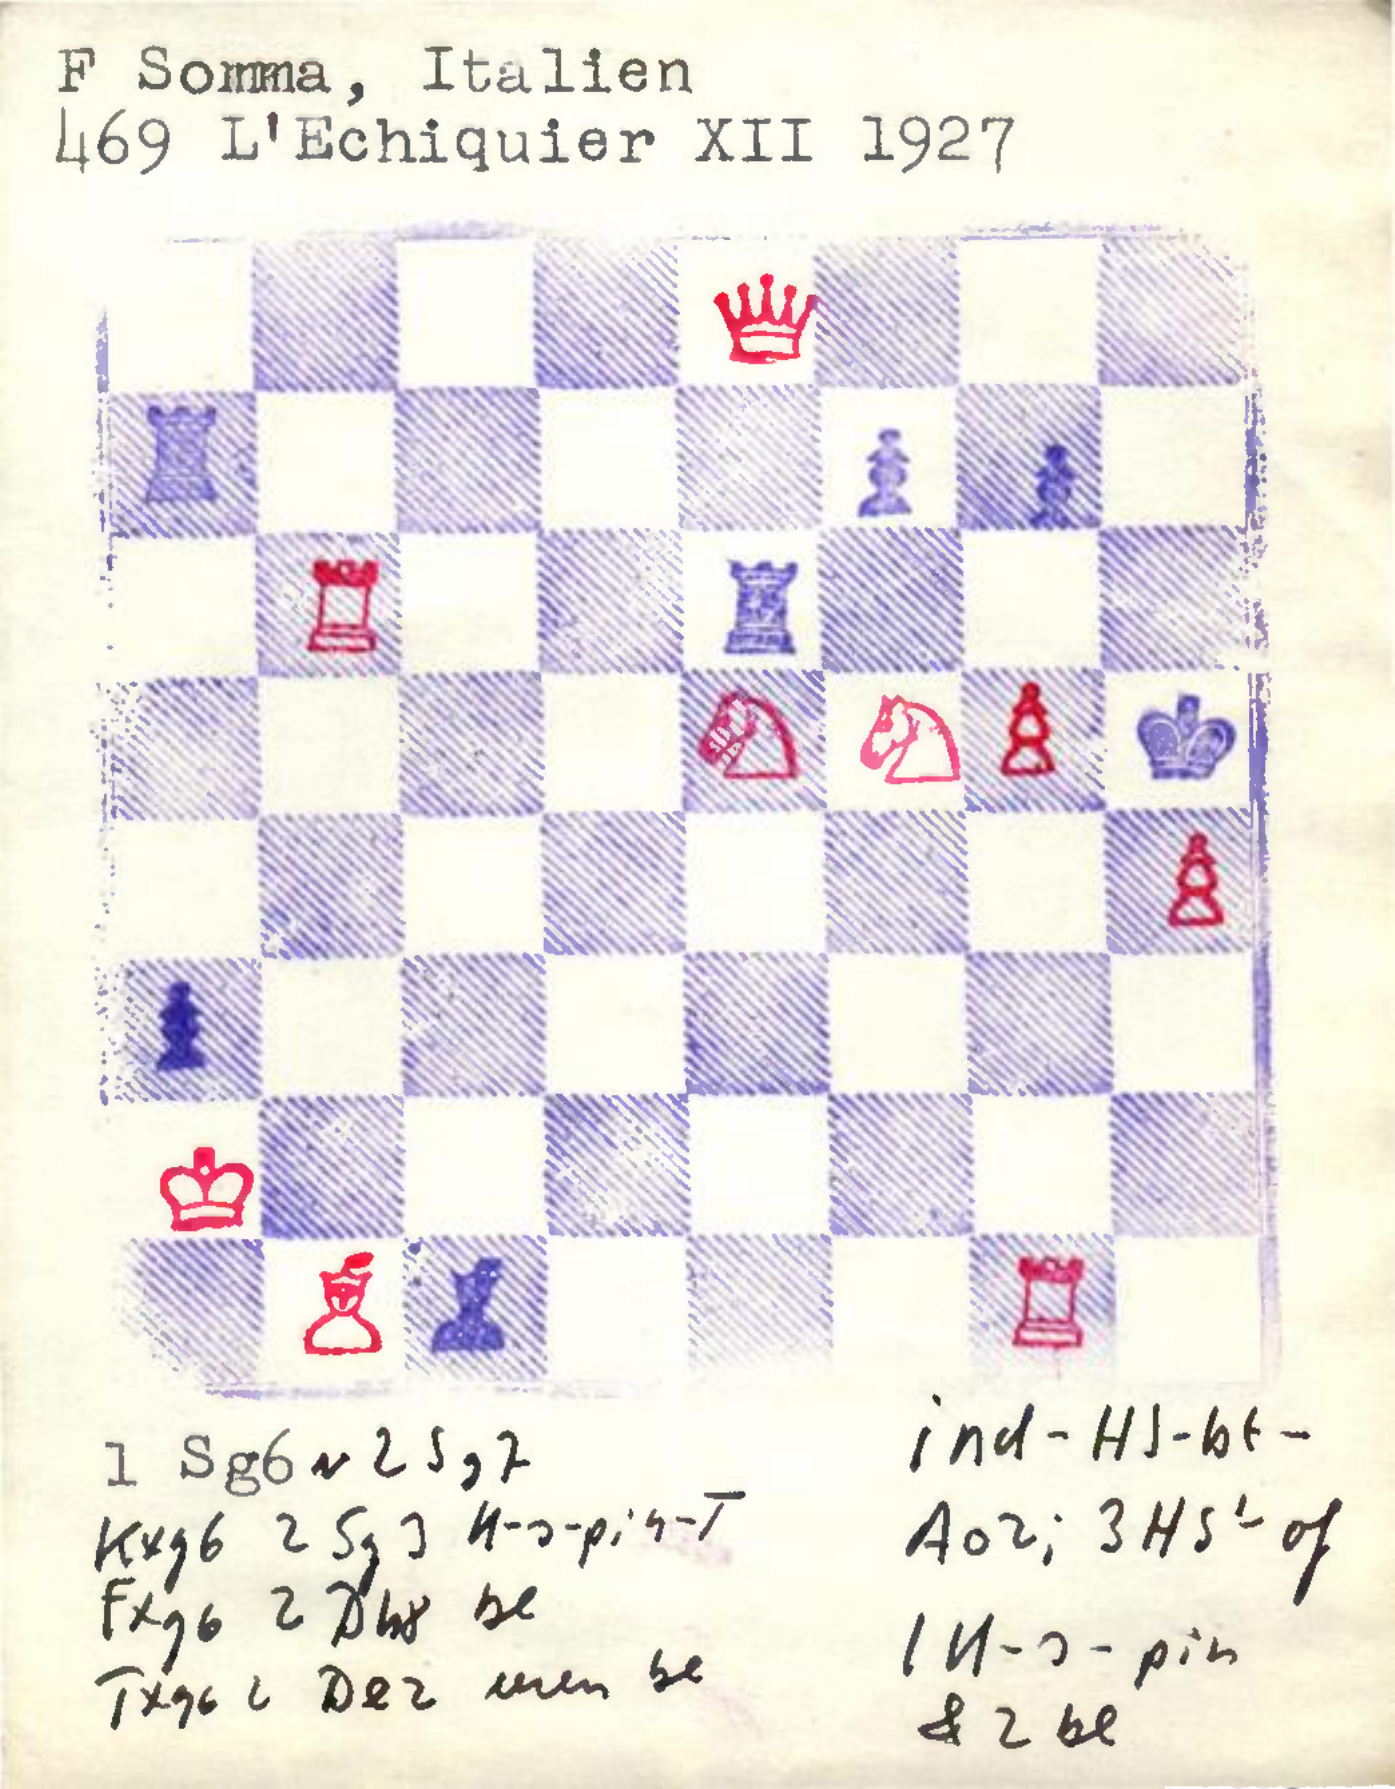 F Somma, Italien
469 L'Echiquier XII 1927
1 Sg6 ~ 2 Sg7
Kxg6 2 Sg3 H-s-pin-T
Fxg6 2 Dh8 bl
Txg6 2 De2 bl
ind-HS-bt-
A02; 3HS- of
1 H-s-pin
& 2 bl